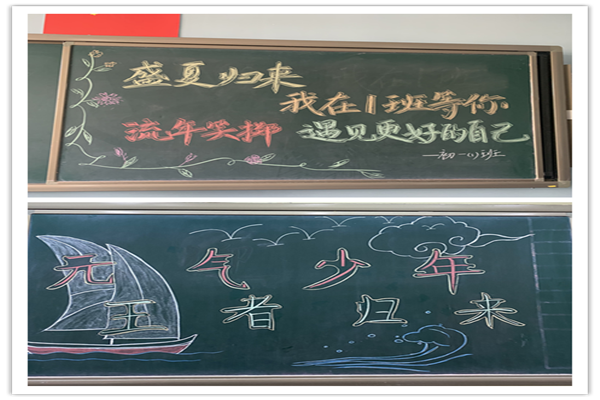 盛夏归来
我在1班等你
流年笑掷 遇见更好的自己
—初一(1)班
元气少年
王者归来